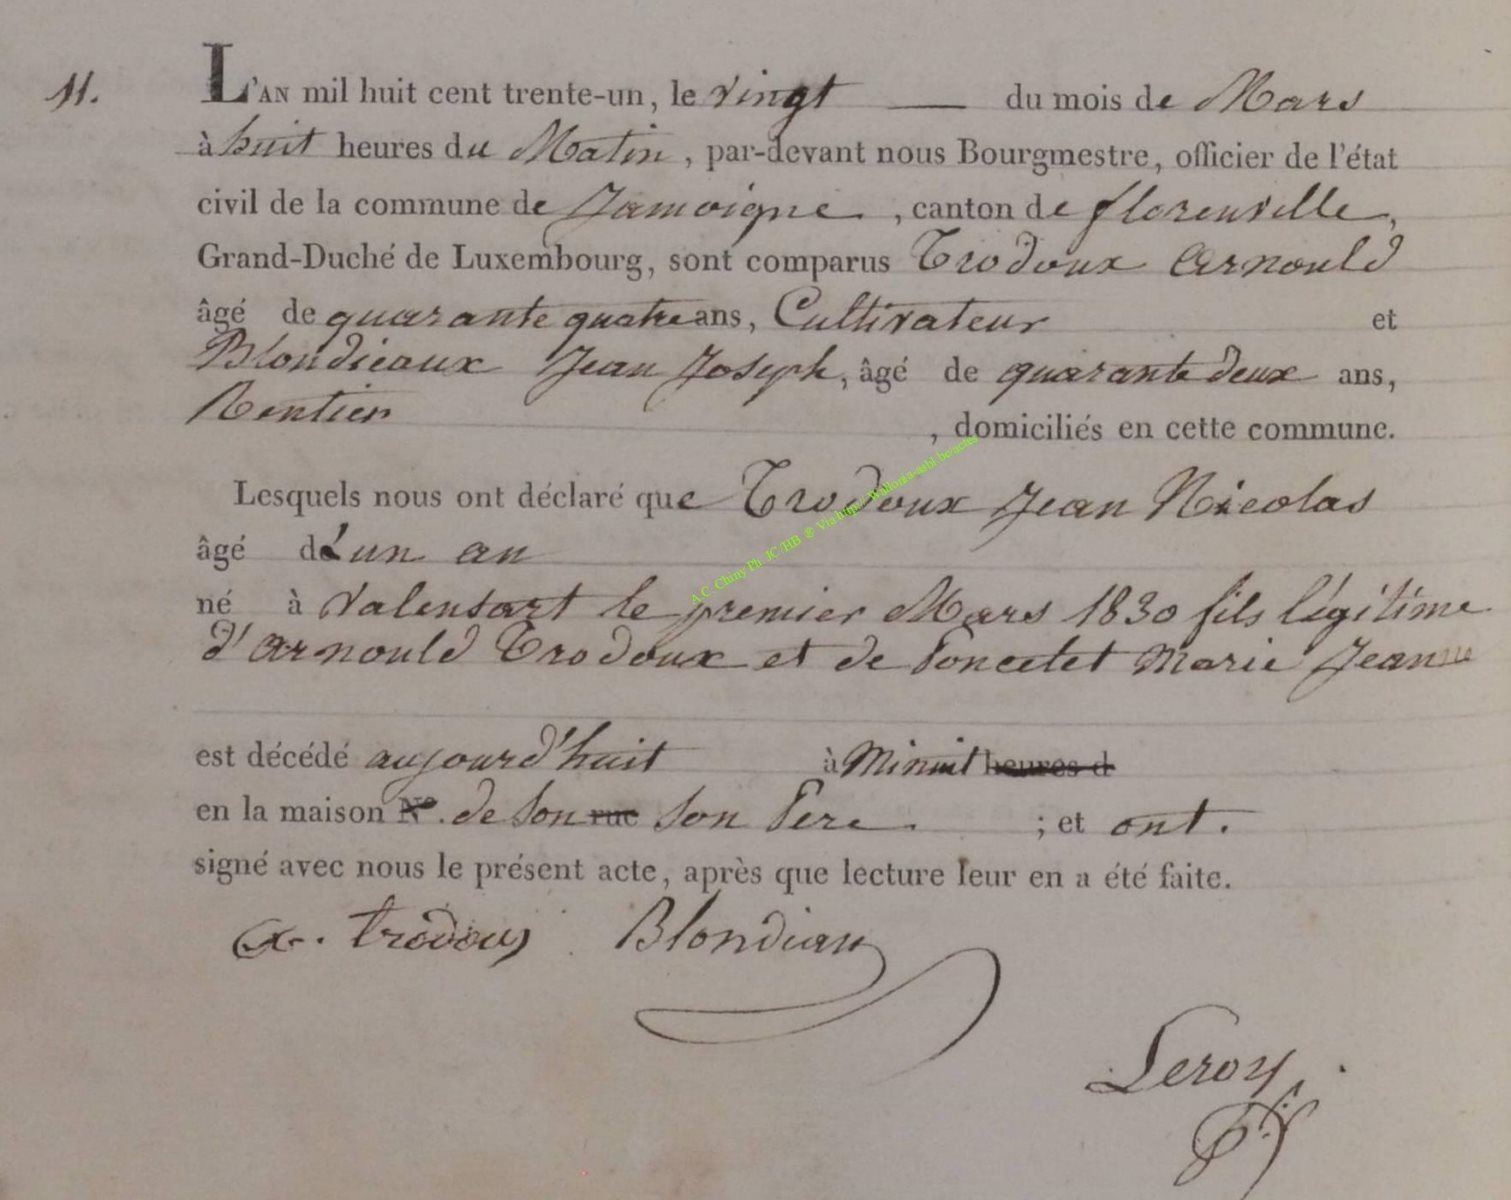 11.
L'AN mil huit cent trente-un, le vingt — du mois de Mars
à huit heures du Matin, par-devant nous Bourgmestre, officier de l'état
civil de la commune de Jamoigne, canton de florenville,
Grand-Duché de Luxembourg, sont comparus Trodoux Arnould
âgé de quarante quatre ans, Cultivateur et
Blondieaux Jean Joseph, âgé de quarante deux ans,
Rentier , domiciliés en cette commune.
Lesquels nous ont déclaré que Trodoux Jean Nicolas
âgé d'un an
né à Valensart le premier Mars 1830 fils légitime
d'Arnould Trodoux et de Poncelet Marie Jeanne
est décédé aujourd'huit à Minuit heures d
en la maison N°. de son rue son Pere ; et ont.
signé avec nous le présent acte, après que lecture leur en a été faite.
a. trodoux Blondiau
Leroy
A.C. Chiny Ph. JC/HB @ Via http://Wallonia-asbl.be/actes